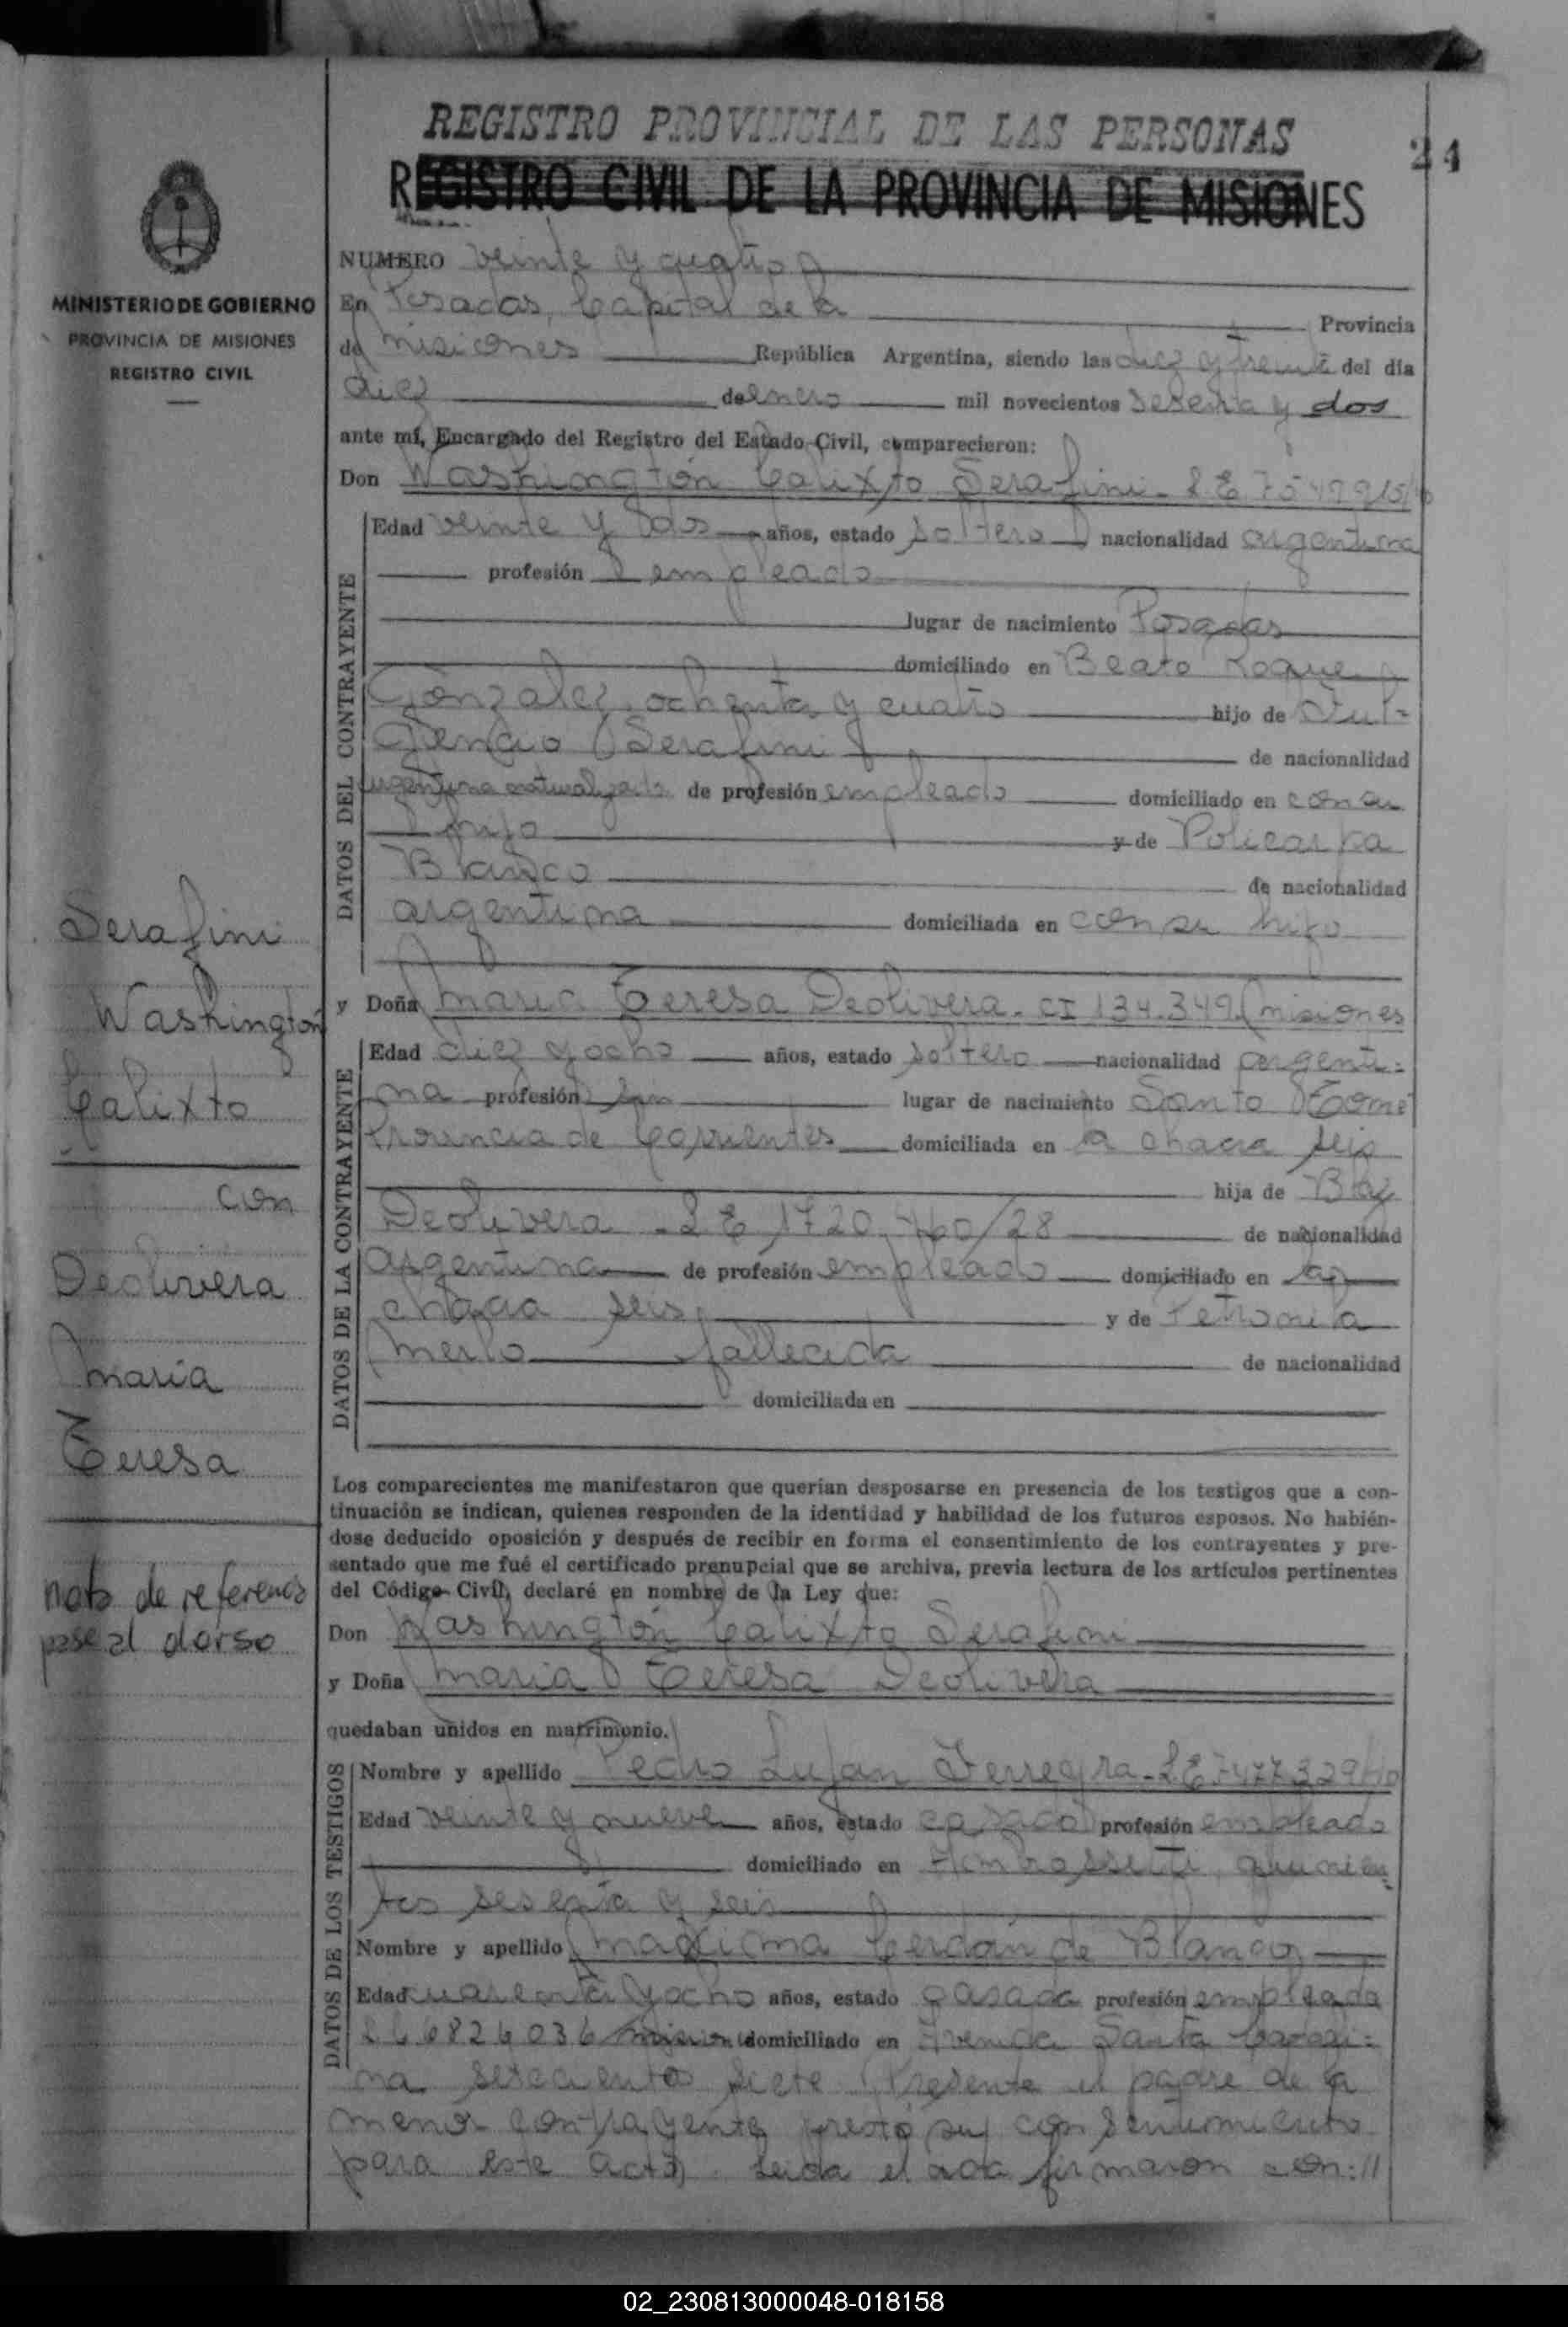 REGISTRO PROVINCIAL DE LAS PERSONAS
24
REGISTRO CIVIL DE LA PROVINCIA DE MISIONES
MINISTERIO DE GOBIERNO
PROVINCIA DE MISIONES
REGISTRO CIVIL
NUMERO veinte y cuatro
En Posadas, Capital de la Provincia
de Misiones República Argentina, siendo las diez y treinta del día
diez de enero mil novecientos setenta y dos
ante mí, Encargado del Registro del Estado Civil, comparecieron:
Don Washington Calixto Serafini - L E
DATOS DEL CONTRAYENTE
Edad veinte y dos años, estado soltero nacionalidad argentina
profesión empleado
lugar de nacimiento Posadas
domiciliado en Beato Roque
González ochenta y cuatro hijo de
Serafini de nacionalidad
argentina naturalizado de profesión empleado domiciliado en con su
hijo y de Policarpa
Blanco de nacionalidad
argentina domiciliada en con su hijo
y Doña Maria Teresa Deolivera - CI 134.349 Misiones
DATOS DE LA CONTRAYENTE
Edad diez y ocho años, estado soltero nacionalidad argenti-
na profesión lugar de nacimiento Santo Tomé
Provincia de Corrientes domiciliada en la chacra seis
hija de Blaz
Deolivera - L E 1720.460/28 de nacionalidad
argentina de profesión empleado domiciliado en la
chacra seis y de Petronila
Merlo fallecida de nacionalidad
domiciliada en
Los comparecientes me manifestaron que querían desposarse en presencia de los testigos que a con-
tinuación se indican, quienes responden de la identidad y habilidad de los futuros esposos. No habién-
dose deducido oposición y después de recibir en forma el consentimiento de los contrayentes y pre-
sentado que me fué el certificado prenupcial que se archiva, previa lectura de los artículos pertinentes
del Código Civil, declaré en nombre de la Ley que:
Don Washington Calixto Serafini
y Doña Maria Teresa Deolivera
quedaban unidos en matrimonio.
DATOS DE LOS TESTIGOS
Nombre y apellido Pedro Lujan Ferreyra - L E 7477329
Edad veinte y nueve años, estado casado profesión empleado
domiciliado en Ambrossetti quinien-
tos sesenta y seis
Nombre y apellido Maxima Cerdán de Blanco
Edad cuarenta y ocho años, estado casada profesión empleada
6826036 Misiones domiciliado en Avenida Santa Catali-
na setecientos siete Presente el padre de la
menor contrayente prestó su consentimiento
para este acto. Leida el acta firmaron con://
Serafini
Washington
Calixto
con
Deolivera
Maria
Teresa
nota de referencia
pase al dorso
02_230813000048-018158